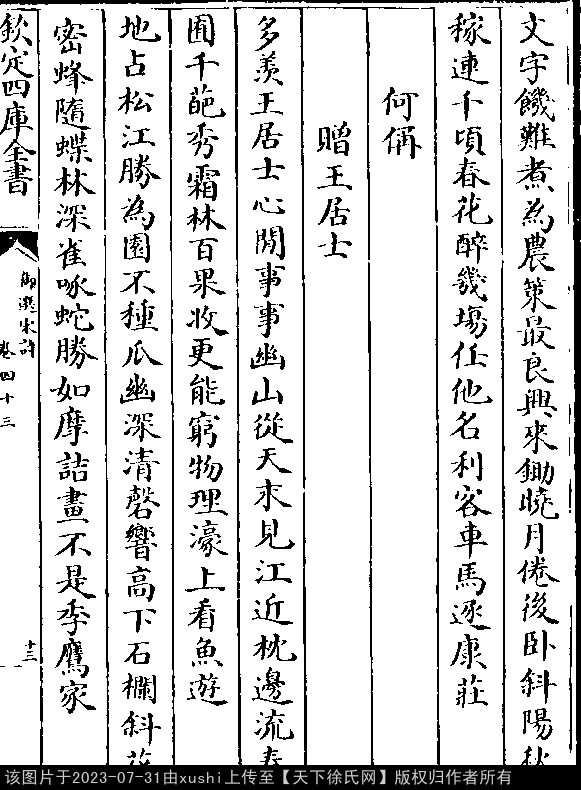 文字饑難煮為農策最良興來鋤曉月倦後卧斜陽秋
稼連千頃春花醉幾塲任他名利客車馬逐康莊
何偁
贈王居士
多羨王居士心閒事事幽山從天末見江近枕邊流春
圃千葩秀霜林百果收更能窮物理濠上看魚遊
地占松江勝為園不種瓜幽深清磬響高下石欄斜花
密蜂隨蝶林深雀啄蛇勝如摩詰畫不是季鷹家
欽定四庫全書
御選宋詩
卷四十三
十三
该图片于2023-07-31由xushi上传至【天下徐氏网】版权归作者所有